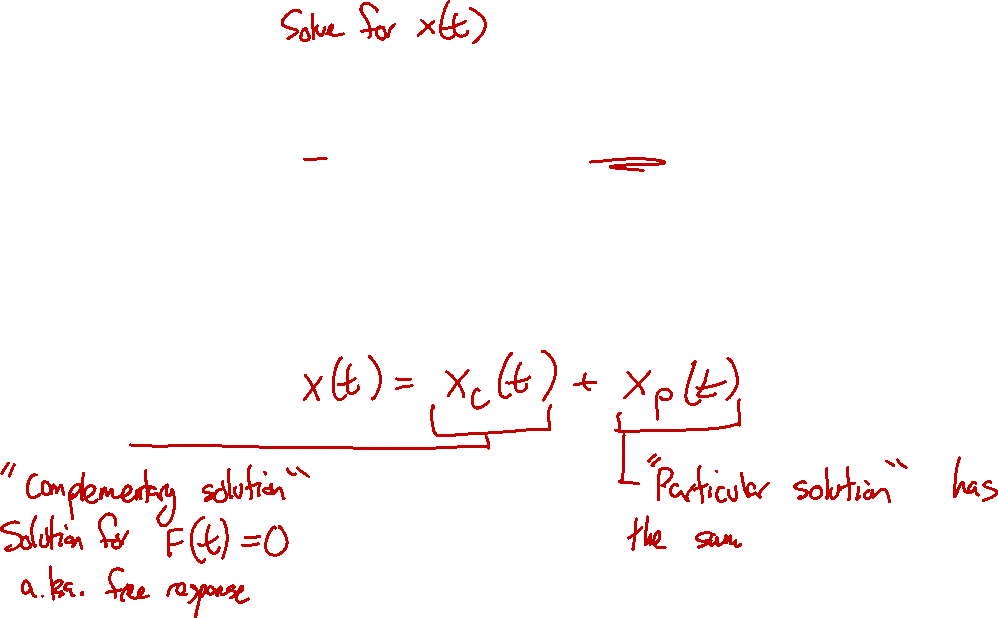 Solve for x(t)
x(t) = x_c(t) + x_p(t)
"Complementary solution"
Solution for F(t) = 0
a.k.a. free response
"Particular solution" has
the sam